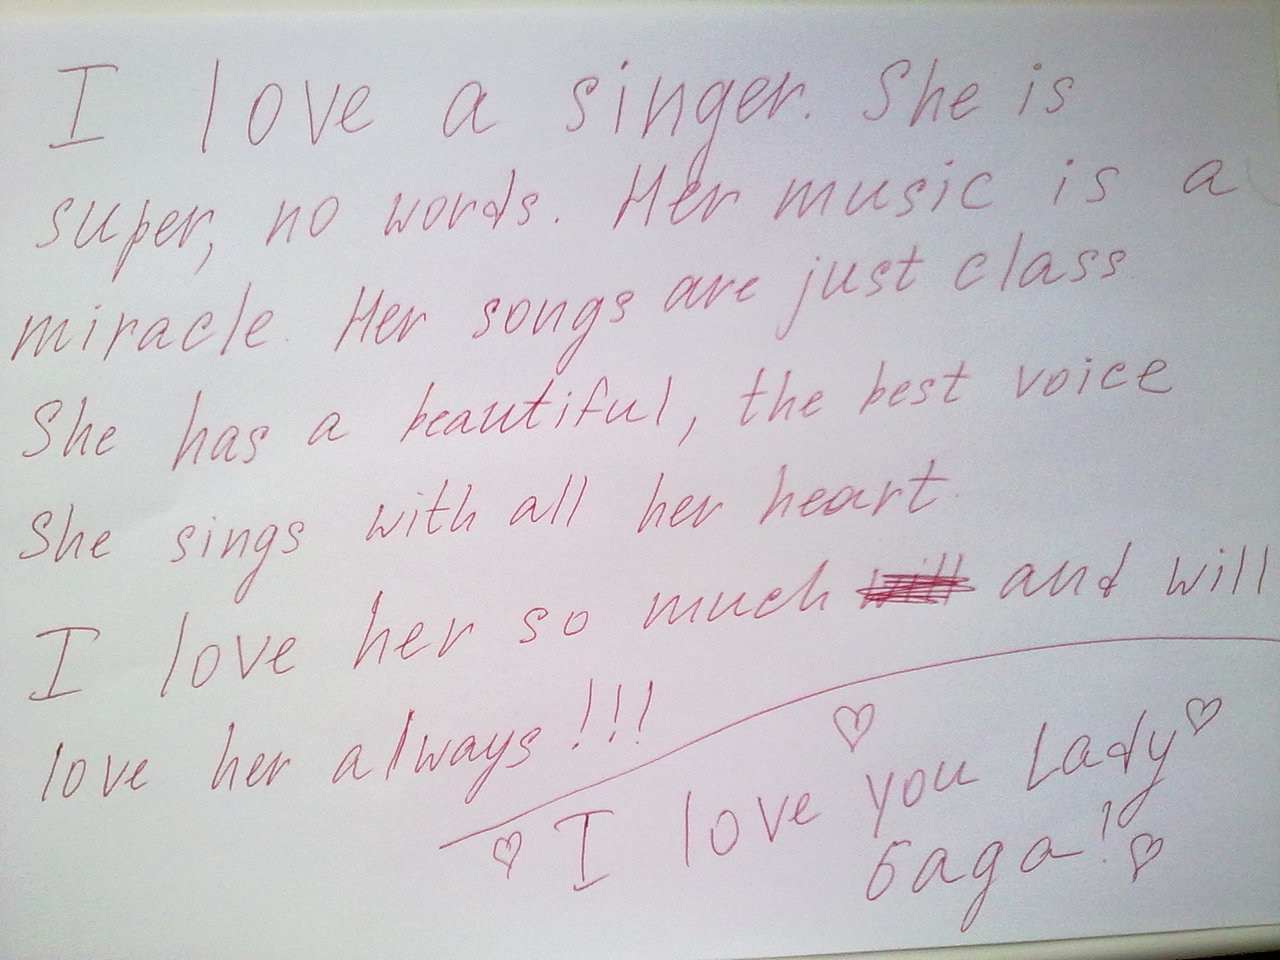 I love a singer. She is
super, no words. Her music is a
miracle. Her songs are just class
She has a beautiful, the best voice
She sings with all her heart.
I love her so much will and will
love her always!!!
I love you Lady
Gaga!